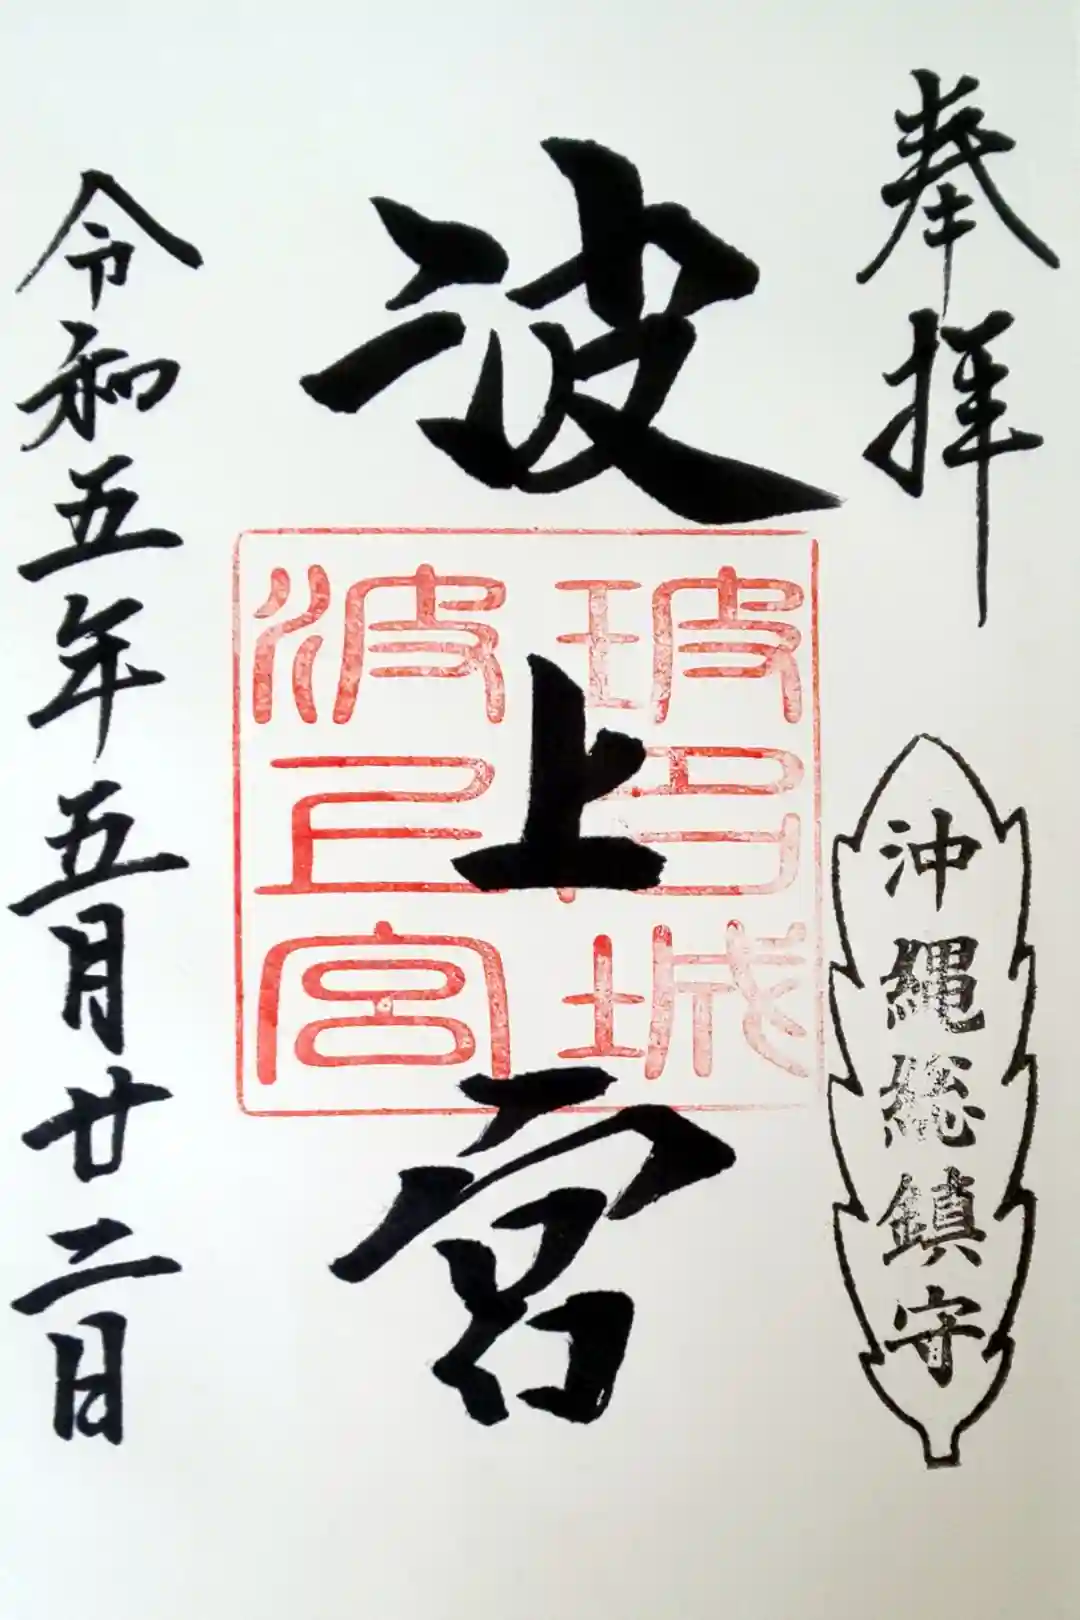 奉拝
沖縄総鎮守
波上宮
令和五年五月廿二日
波上宮